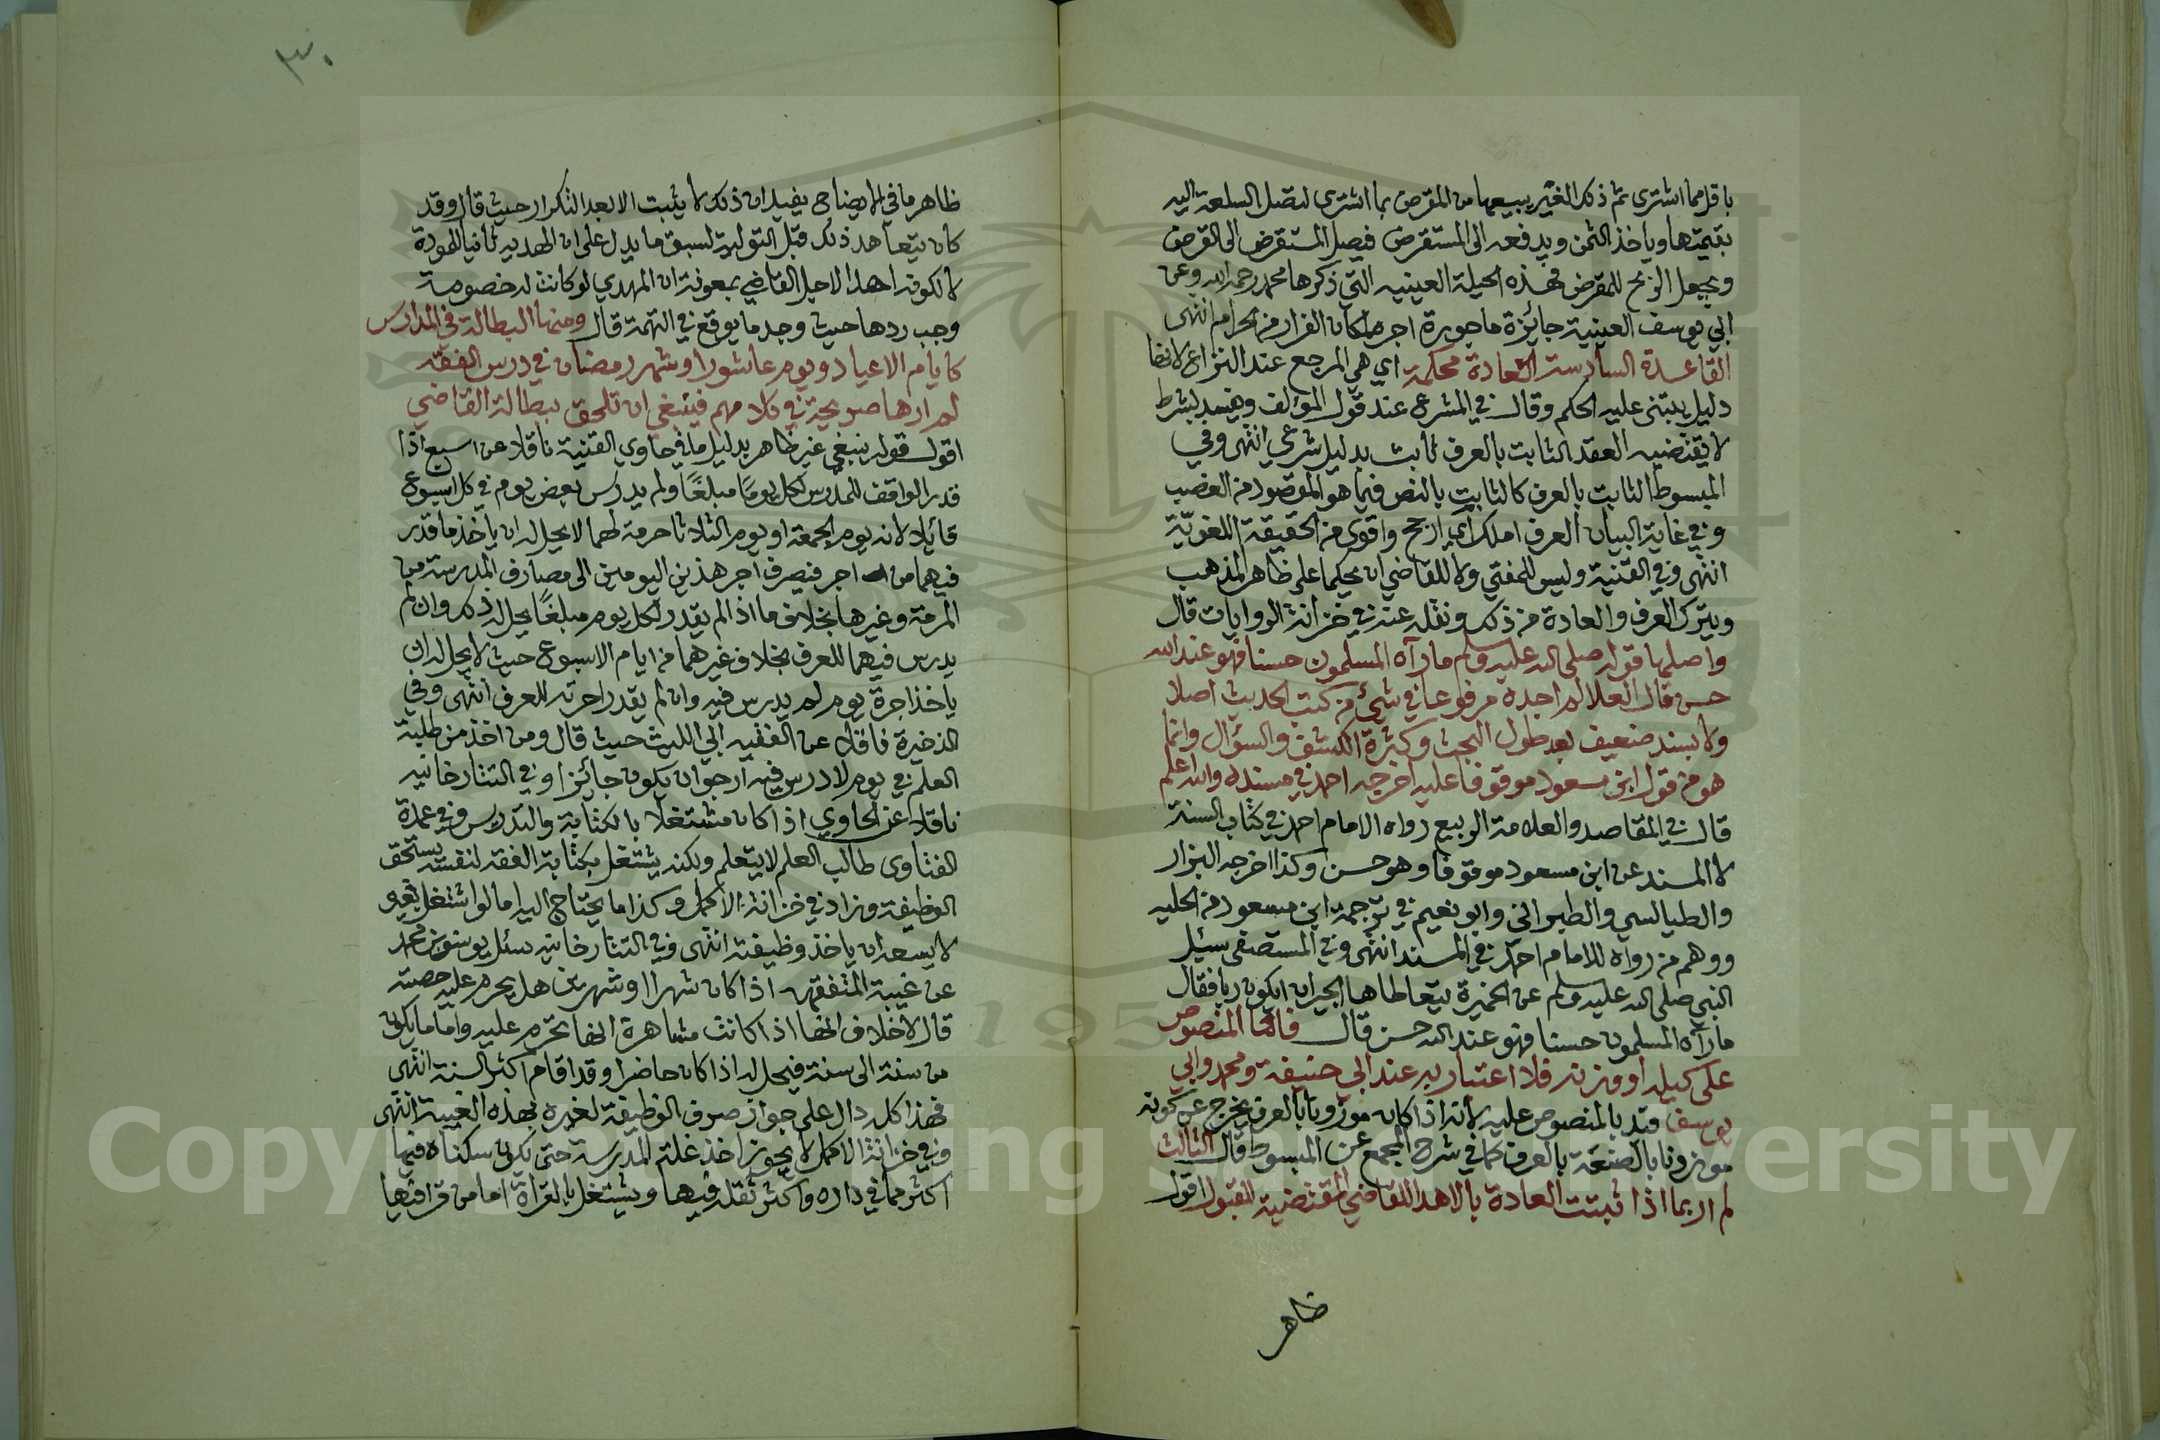 باقل مما اشترى ثم ذلك الغير يبيعها من المقرض بما اشترى لتصل السلعة اليه
بقيمتها وياخذ الثمن ويدفعه الى المستقرض فيصل المستقرض الى القرض
ويحصل الربح للمقرض فهذه الحيلة العينية التي ذكرها محمد رحمه الله وعن
ابي يوسف العينية جائزة ماجورة اجرها لمكان الفرار من الحرام انتهى
القاعدة السادسة العادة محكمة اي هي المرجع عند النزاع لانها
دليل يبتنى عليه الحكم وقال في المشرع عند قول المؤلف ويفسد بشرط
لا يقتضيه العقد الثابت بالعرف ثابت بدليل شرعي انتهى وفي
المبسوط الثابت بالعرف كالثابت بالنص فيما هو المقصود من الغصب
وفي غاية البيان العرف املك اي ارجح واقوى من الحقيقة اللغوية
انتهى وفي القنية وليس للمفتي ولا للقاضي ان يحكما على ظاهر المذهب
ويترك العرف والعادة من ذلك ونقله عنه في خزانة الروايات قال
واصلها قوله صلى الله عليه وسلم ما رآه المسلمون حسنا فهو عند الله
حسن قال العلا لم اجده مرفوعا في شيء من كتب الحديث اصلا
ولا بسند ضعيف بعد طول البحث وكثرة الكشف والسؤال وانما
هو من قول ابن مسعود موقوفا عليه اخرجه احمد في مسنده والله اعلم
قال في المقاصد والعلامة الربيع رواه الامام احمد في كتاب السنة
لا المسند عن ابن مسعود موقوفا وهو حسن وكذا اخرجه البزار
والطيالسي والطبراني وابو نعيم في ترجمة ابن مسعود من الحلية
ووهم من رواه للامام احمد في المسند انتهى وفي المستصفى سئل
النبي صلى الله عليه وسلم عن الخميرة يتعاطاها الجيران ايكون ربا فقال
ما رآه المسلمون حسنا فهو عند الله حسن قال فانما المنصوص
على كيله او وزنه فلا اعتبار به عند ابي حنيفة ومحمد وابي
يوسف قيد بالمنصوص عليه لانه اذا كان موزونا بالعرف يخرج عن كونه
موزونا بالصنعة بالعرف كما في شرح المجمع عن المبسوط قال الثالث
لم ار بما اذا ثبتت العادة بالاهدا للقاضي المقتضية للقبول اقول
ظاهر
٣٠
ظاهر ما في الايضاح يفيد ان ذلك لا يثبت الا بعد التكرار حيث قال وقد
كان يتعاهد ذلك قبل التولية لسبق ما يدل على ان الهدية ثانيا للمودة
لا لكونه اهدا لاجل القاضي بمعونة ان المهدي لو كانت له خصومة
وجب ردها حيث وجد ما يوقع في التهمة قال ومنها البطالة في المدارس
كايام الاعياد ويوم عاشورا وشهر رمضان في درس الفقه
لم ارها صريحة في كلامهم فينبغي ان تلحق ببطالة القاضي
اقول قوله ينبغي غير ظاهر بدليل ما في حاوي القنية ناقلا عن اسبع اذا
قدر الواقف للمدرس لكل يوما مبلغا ولم يدرس بعض يوم في كل اسبوع
قائلا لانه يوم الجمعة او يوم الثلاثا حرمة لهما لا يحل له ان ياخذ ما قدر
فيهما من اجر فيصرف اجر هذين اليومين الى مصارف المدرسة من
المرمة وغيرها بخلاف ما اذا لم يقدر لكل يوم مبلغا يحل له ذلك وان لم
يدرس فيهما للعرف بخلاف غيرهما من ايام الاسبوع حيث لا يحل له ان
ياخذ اجرة يوم لم يدرس فيه وان لم يقدر اجرته للعرف انتهى وفي
الذخيرة ناقلا عن الفقيه ابي الليث حيث قال ومن اخذ من طلبة
العلم في يوم لا درس فيه ارجو ان يكون جائزا وفي التتارخانيه
ناقلا عن الحاوي اذا كان مشتغلا بالكتابة والتدريس وفي عمدة
الفتاوى طالب العلم لا يتعلم ولكنه يشتغل بكتابة الفقه لنفسه يستحق
الوظيفة وزاد في خزانة الاكمل وكذا ما يحتاج اليه اما لو اشتغل بغيره
لا يسعه ان ياخذ وظيفته انتهى وفي التتارخانية سئل يوسف بن محمد
عن غيبة المتفقه اذا كان شهرا او شهرين هل يحرم عليه حصته
قال لا خلاف انها اذا كانت مشاهرة انها تحرم عليه واما ما يكون
من سنة الى سنة فيحل له اذا كان حاضرا وقد اقام اكثر السنة انتهى
فهذا كله دال على جواز صرف الوظيفة لغيره بهذه الغيبة انتهى
وفي خزانة الاكمل لا يجوز اخذ غلة المدرسة حتى تكون سكناه فيها
اكثر مما في داره واكثر ثقله فيها ويشتغل بالقراة اما من قرا فيها
Copyright © King Saud University
1957